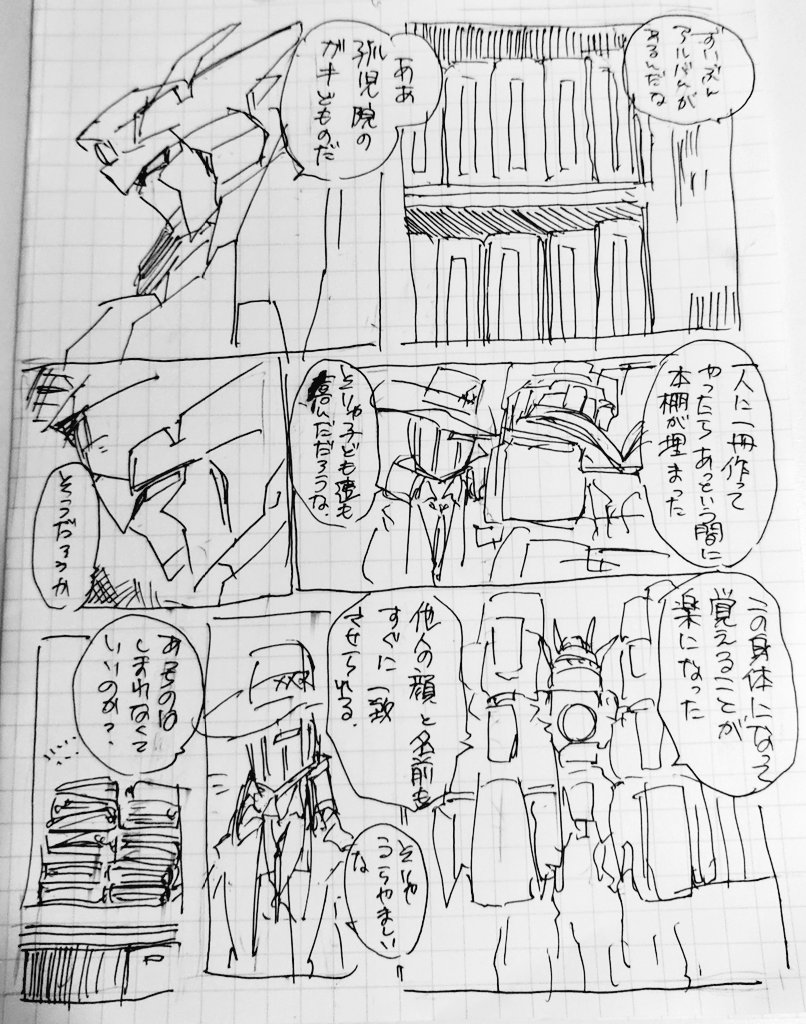 ずいぶん
アルバムが
あるんだな
ああ
孤児院の
ガキどものだ
一人に一冊作って
やったらあっという間に
本棚が埋まった
そりゃ子ども達も
喜んだだろうな
そうだろうか
この身体になって
覚えることが
楽になった
他人の顔と名前も
すぐに一致
させられる
そりゃ
うらやましい
な
あっちのは
しまわなくて
いいのか?